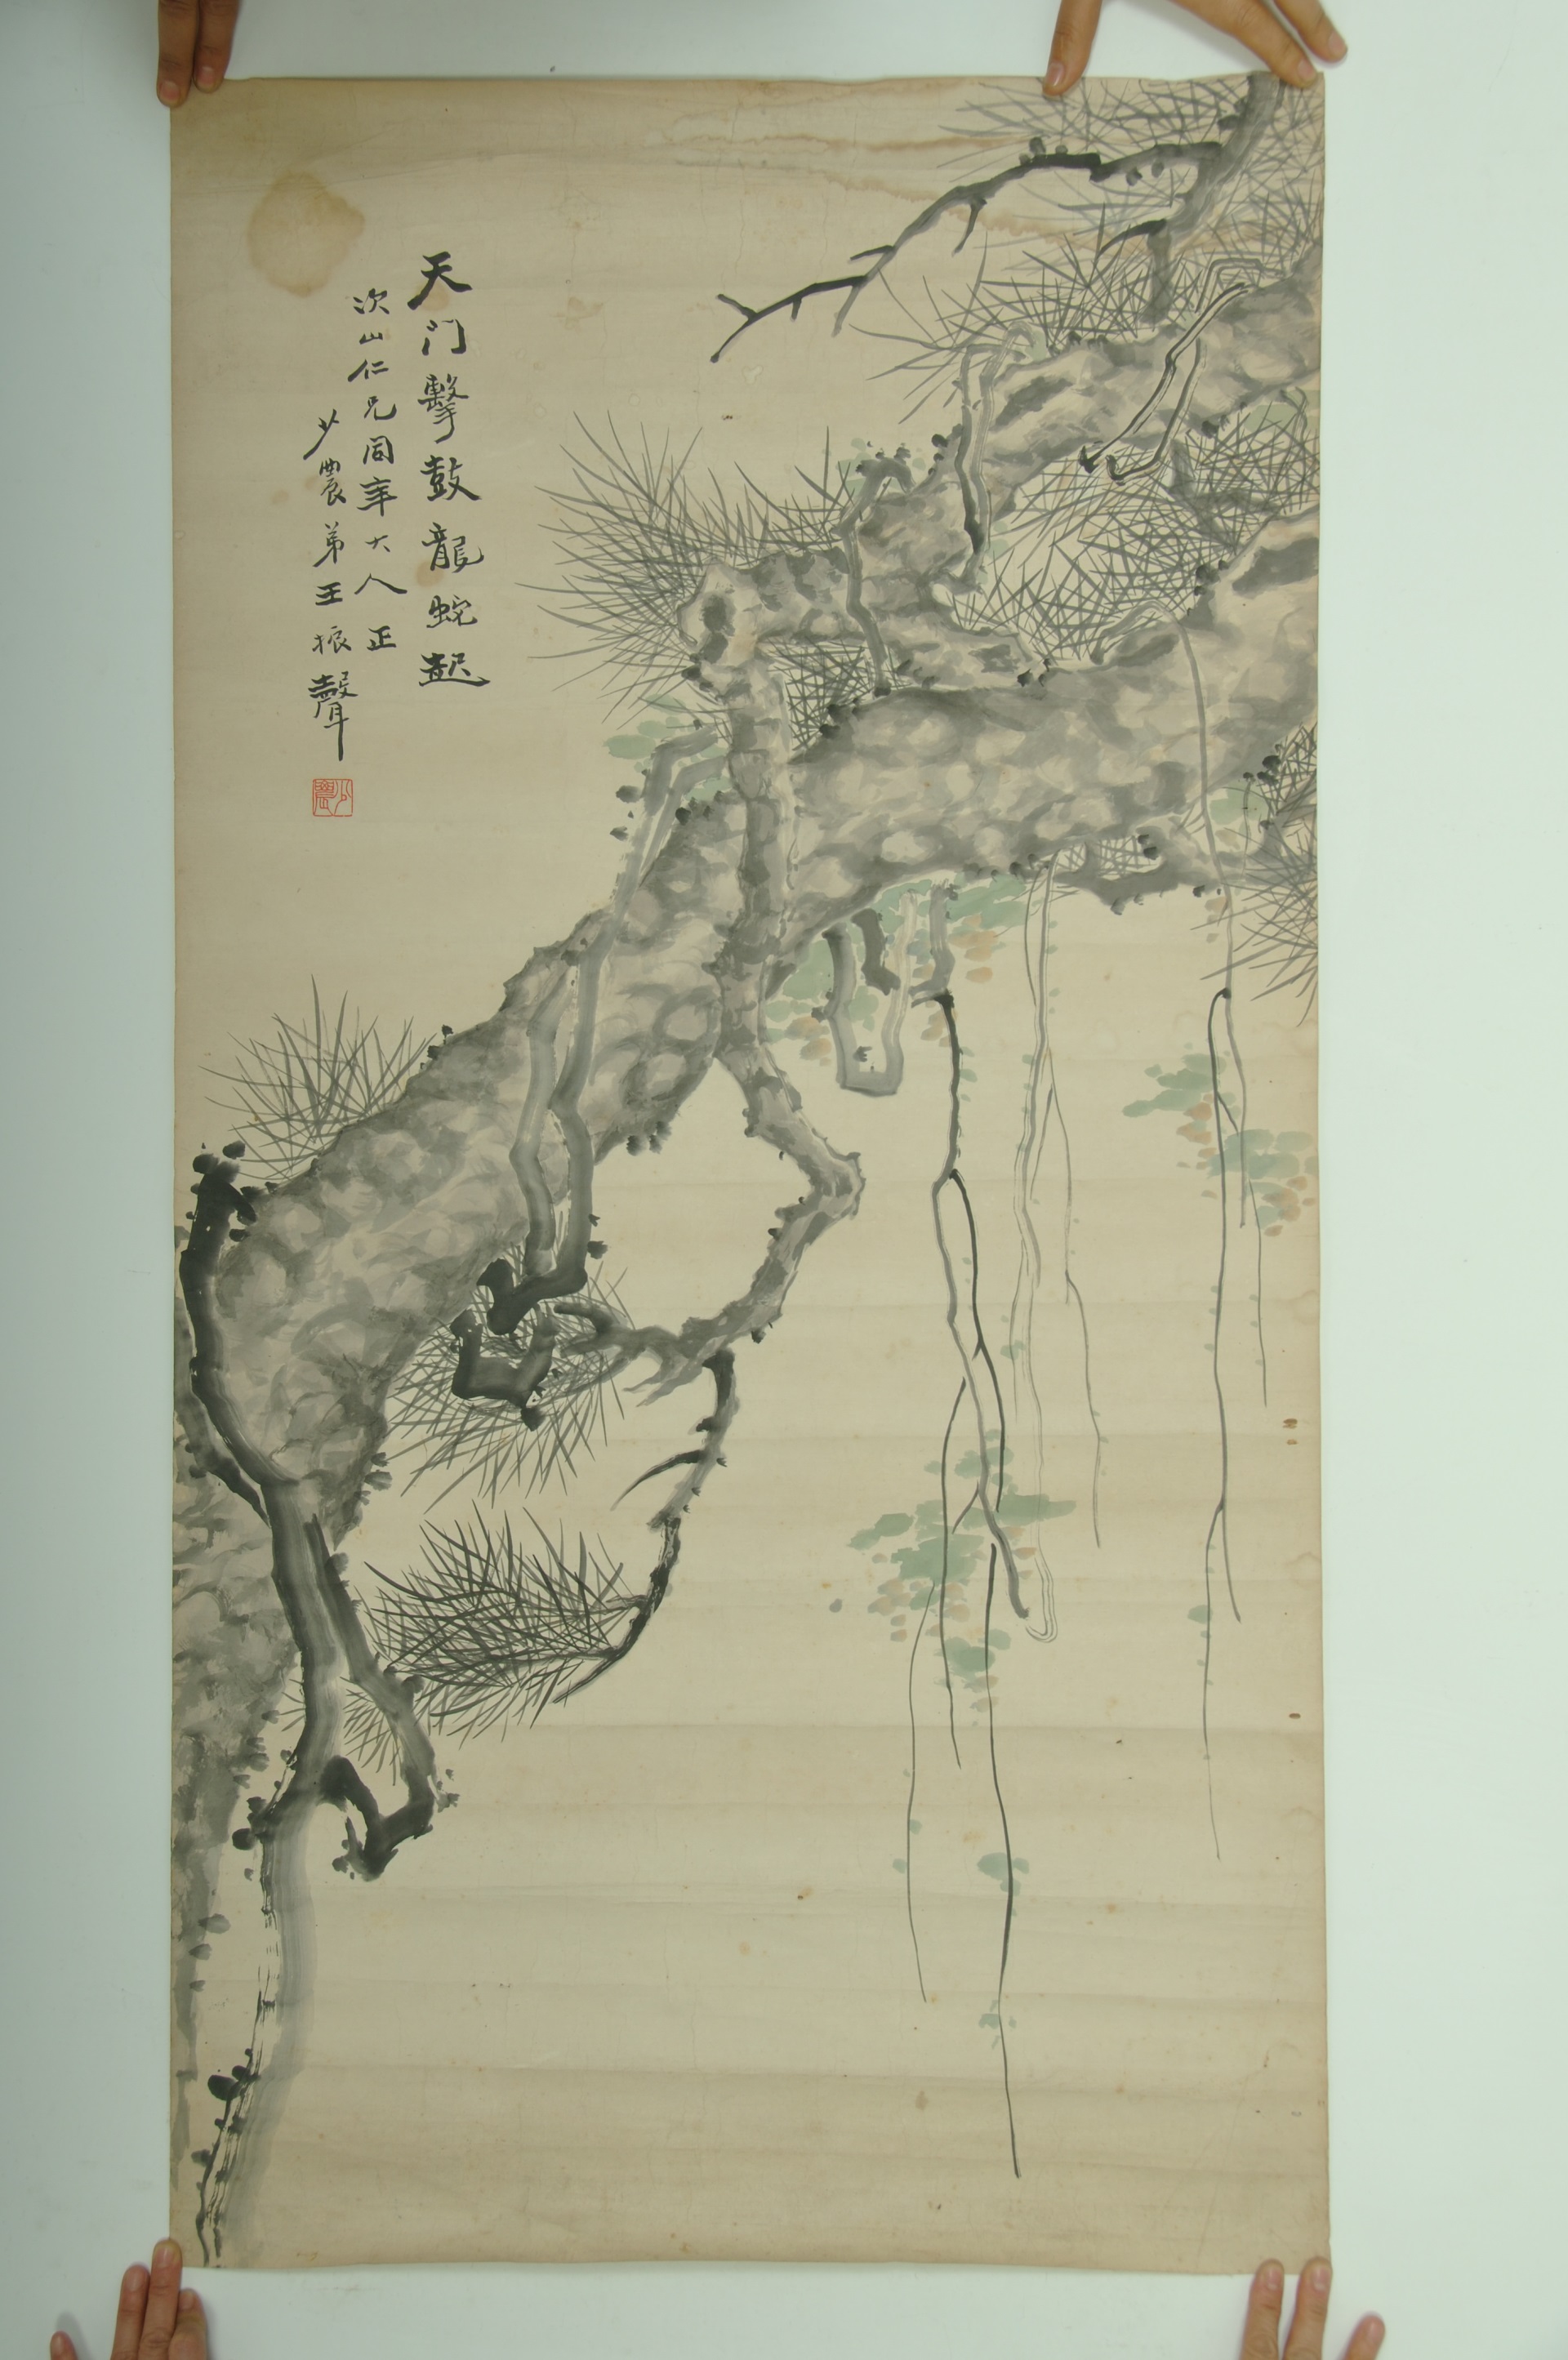 天门擊鼓龍蛇起
次山仁兄同年大人正
少農弟王振聲
少農